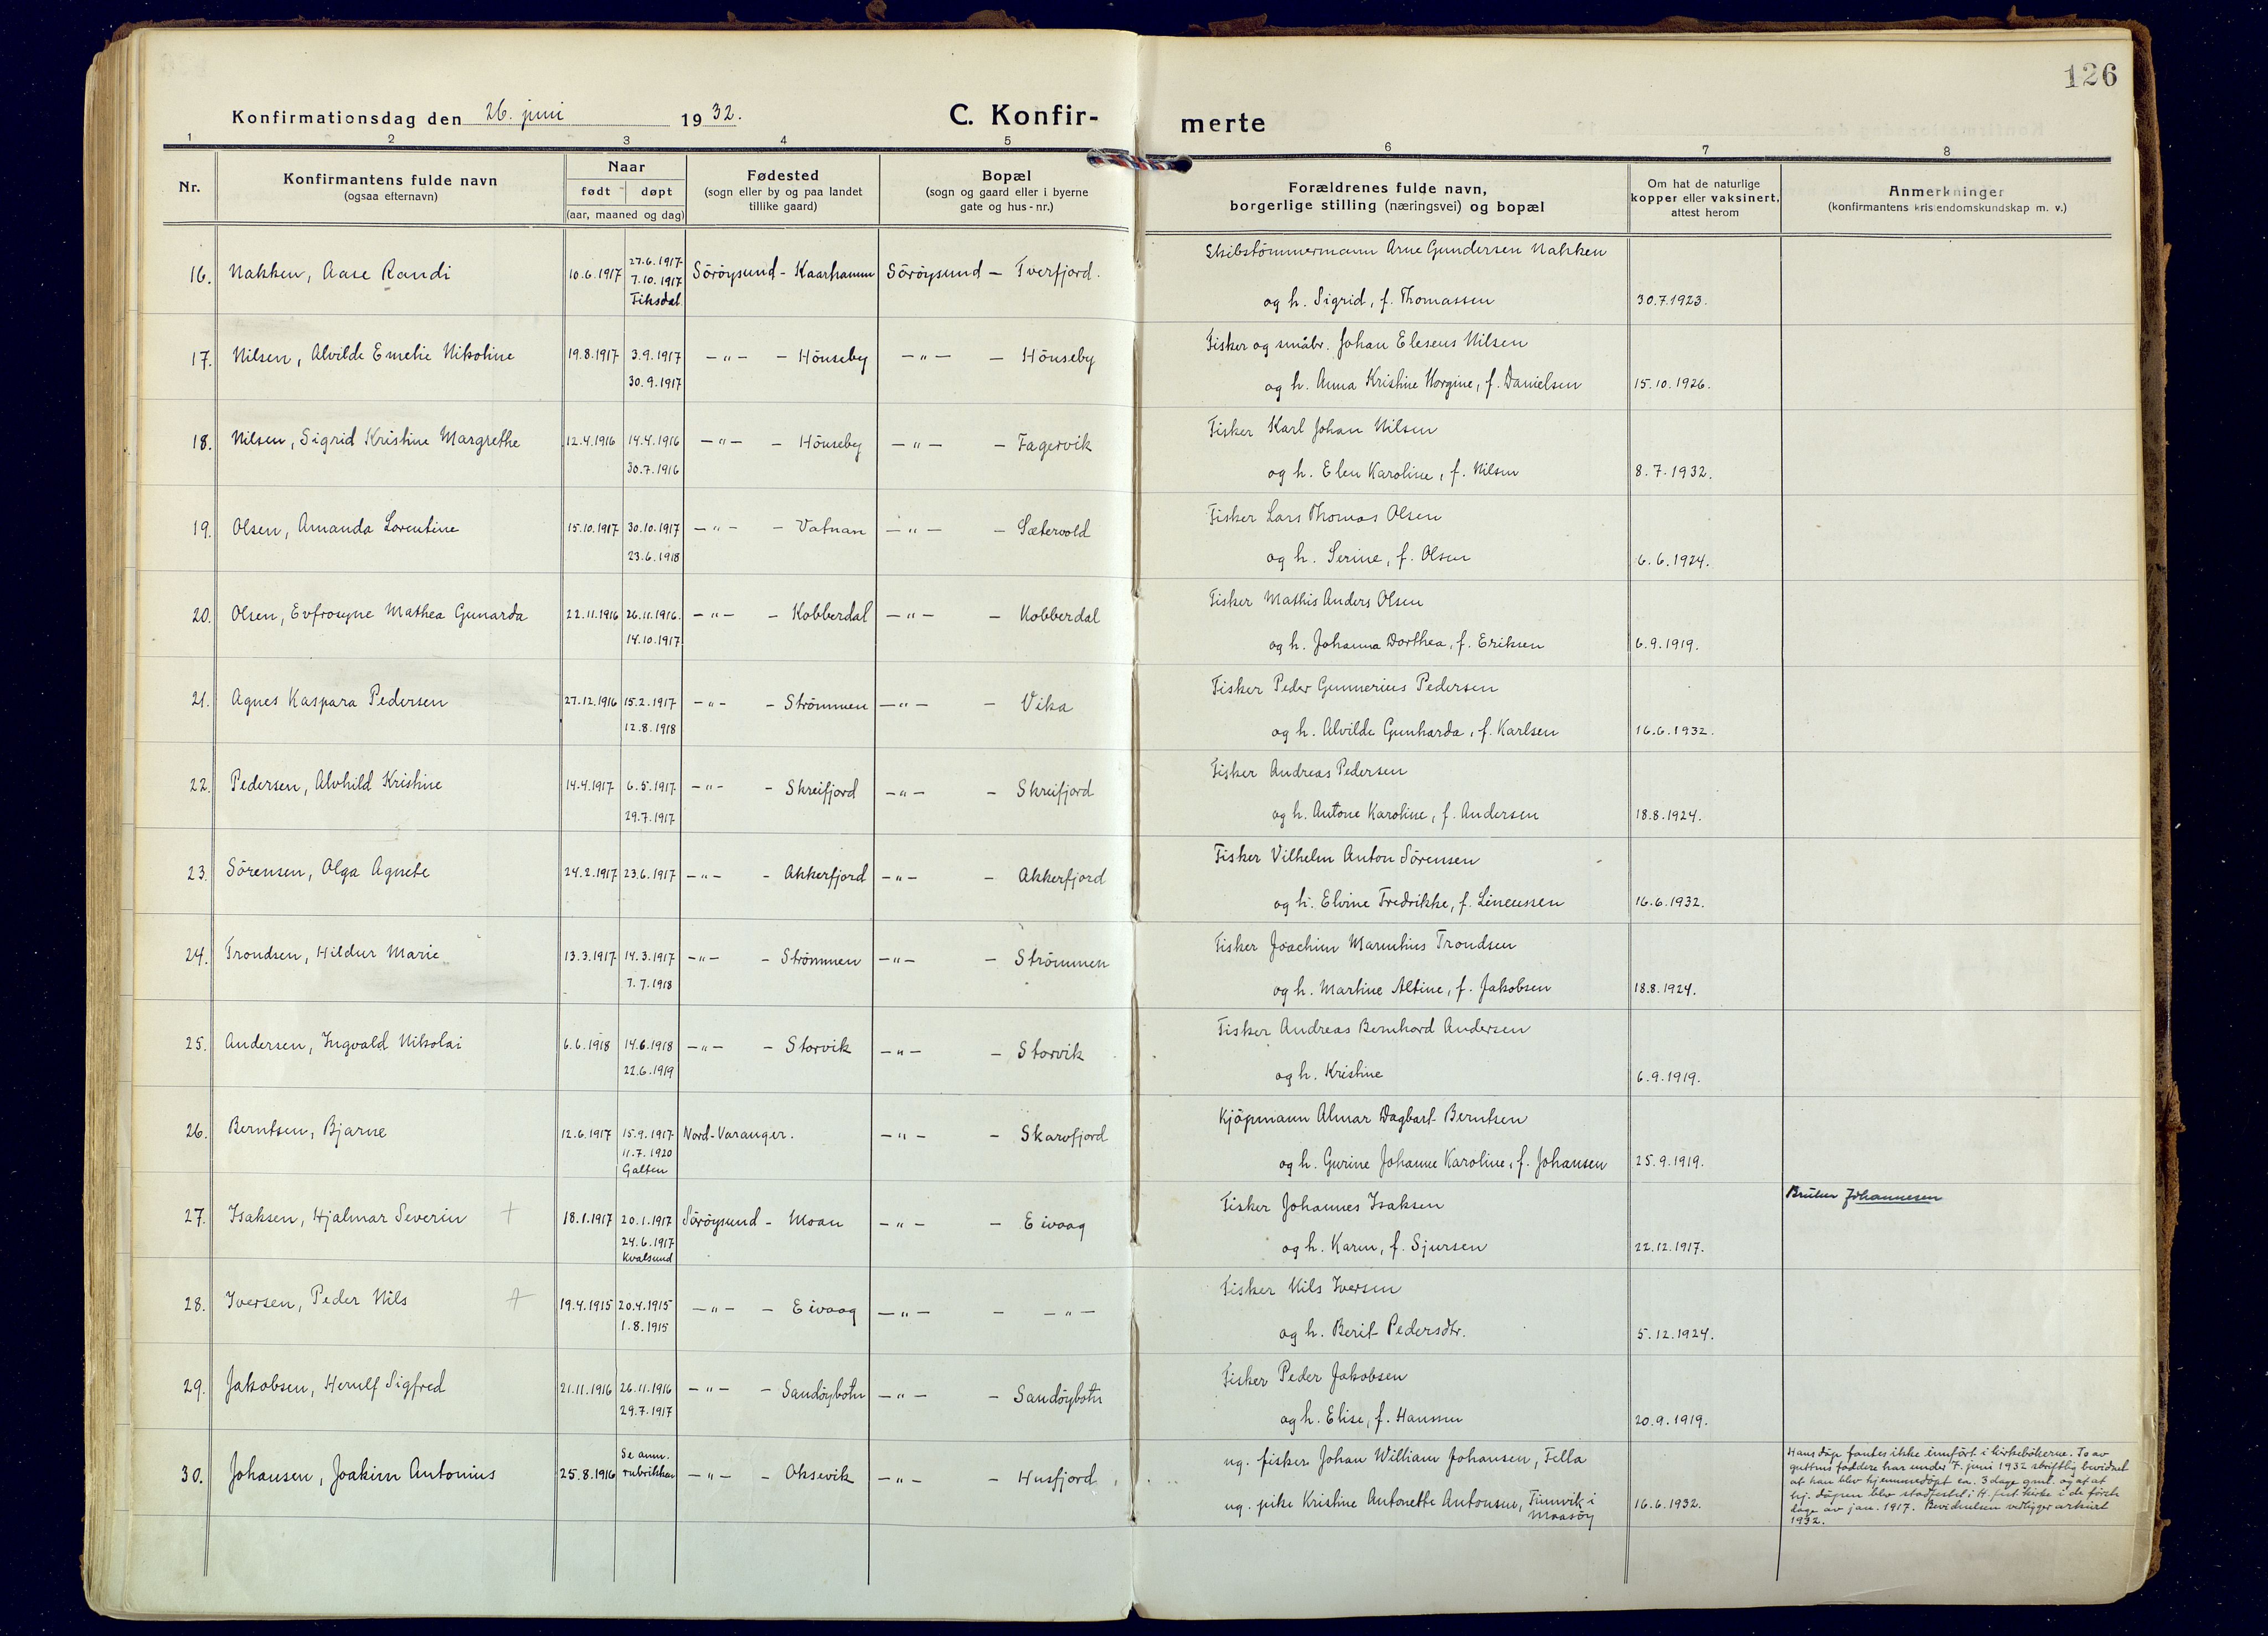 126
Konfirmationsdag den 26. juni 1932.
C. Konfir-
merte
1 2 3 4 5 6 7 8
Nr.
Konfirmantens fulde navn
(ogsaa efternavn)
Naar
født døpt
(aar, maaned og dag)
Fødested
(sogn eller by og paa landet
tillike gaard)
Bopæl
(sogn og gaard eller i byerne
gate og hus-nr.)
Forældrenes fulde navn,
borgerlige stilling (næringsvei) og bopæl
Om hat de naturlige
kopper eller vaksinert,
attest herom
Anmerkninger
(konfirmantens kristendomskundskap m. v.)
16. Nakken, Aase Randi 10.6.1917 27.6.1917 Söröysund - Kaarhamn Söröysund - Tverfjord. Skibstömmermann Arne Gundersen Nakken
7.10.1917
Fiksdal og h. Sigrid, f. Thomassen 30.7.1923.
17. Nilsen, Alvilde Emelie Nikoline 19.8.1917 3.9.1917 -"- - Hönseby -"- - Hönseby Fisker og småbr. Johan Eleseus Nilsen
30.9.1917 og h. Anna Kristine Norgine, f. Danielsen 15.10.1926.
18. Nilsen, Sigrid Kristine Margrethe 12.4.1916 14.4.1916 -"- - Hönseby -"- - Fagervik Fisker Karl Johan Nilsen
30.7.1916 og h. Elen Karoline, f. Nilsen 8.7.1932.
19. Olsen, Amanda Lorentine 15.10.1917 30.10.1917 -"- - Vatnan -"- - Sætervold Fisker Lars Thomas Olsen
23.6.1918 og h. Serine, f. Olsen 6.6.1924.
20. Olsen, Evfrosyne Mathea Gunarda 22.11.1916 26.11.1916. -"- - Kobberdal -"- - Kobberdal Fisker Mathis Anders Olsen
14.10.1917 og h. Johanna Dorthea, f. Eriksen 6.9.1919.
21. Agnes Kaspara Pedersen 27.12.1916 15.2.1917 -"- - Strömmen -"- - Vika Fisker Peder Gunnerius Pedersen
12.8.1918 og h. Alvilde Gunharda, f. Karlsen 16.6.1932.
22. Pedersen, Alvhild Kristine 14.4.1917 6.5.1917 -"- - Skreifjord -"- - Skreifjord Fisker Andreas Pedersen
29.7.1917 og h. Antone Karoline, f. Andersen 18.8.1924.
23. Sörensen, Olga Agnete 24.2.1917 23.6.1917 -"- - Akkerfjord -"- - Akkerfjord Fisker Vilhelm Anton Sörensen
og h. Elvine Fredrikke, f. Lineussen 16.6.1932.
24. Trondsen, Hildur Marie 13.3.1917 14.3.1917 -"- - Strömmen -"- - Strömmen Fisker Joachim Marentius Trondsen
7.7.1918 og h. Martine Altine, f. Jakobsen 18.8.1924.
25. Andersen, Ingvald Nikolai 6.6.1918 14.6.1918 -"- - Storvik -"- - Storvik Fisker Andreas Bernhard Andersen
22.6.1919 og h. Kristine 6.9.1919.
26. Berntsen, Bjarne 12.6.1917 15.9.1917 Nord-Varanger. -"- - Skarvfjord Kjöpmann Almar Dagbart Berntsen
11.7.1920
Galten og h. Gurine Johanne Karoline, f. Johansen 25.9.1919.
27. Isaksen, Hjalmar Severin + 18.1.1917 20.1.1917 Söröysund - Moan -"- - Eivaag Fisker Johannes Isaksen Bruker Johannesen
24.6.1917
Kvalsund og h. Karen, f. Sjursen 22.12.1917.
28. Iversen, Peder Nils + 19.4.1915 20.4.1915 -"- - Eivaag -"- - -"- Fisker Nils Iversen
1.8.1915 og h. Berit Pedersdtr. 5.12.1924.
29. Jakobsen, Herulf Sigfred 21.11.1916 26.11.1916 -"- - Sandöybotn -"- - Sandöybotn Fisker Peder Jakobsen
29.7.1917 og h. Elise, f. Hansen 20.9.1919.
30. Johansen, Joakim Antonius 25.8.1916 Se anm.
rubrikken -"- - Oksevik -"- - Husfjord ug. fisker Johan William Johansen, Fella
ug. pike Kristine Antonette Antonsen, i
Maasöy 16.6.1932.
Hans dåp fantes ikke innfört i kirkebökerne. To av
guttens faddere har under 7. juni 1932 skriftlig bevidnet
at han blev hjemmedöpt ca. 3 dage gml. og at at
hj. dåpen blev stadfestet i H.fest kirke i de förste
dage av jan. 1917. Bevidnelsen vedligger arkivet
1932.